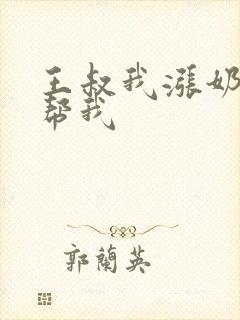 王叔我漲奶
帮我
郭蘭英